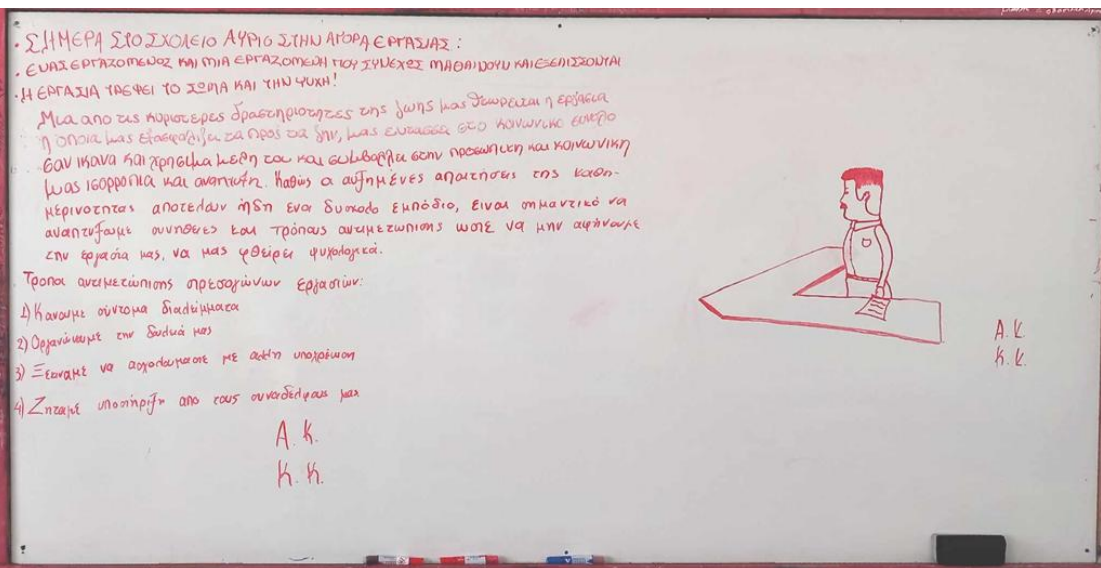 • ΣΗΜΕΡΑ ΣΤΟ ΣΧΟΛΕΙΟ ΑΥΡΙΟ ΣΤΗΝ ΑΓΟΡΑ ΕΡΓΑΣΙΑΣ:
• ΕΝΑΣ ΕΡΓΑΖΟΜΕΝΟΣ ΚΑΙ ΜΙΑ ΕΡΓΑΖΟΜΕΝΗ ΠΟΥ ΣΥΝΕΧΩΣ ΜΑΘΑΙΝΟΥΝ ΚΑΙ ΕΞΕΛΙΣΣΟΝΤΑΙ
• Η ΕΡΓΑΣΙΑ ΤΡΕΦΕΙ ΤΟ ΣΩΜΑ ΚΑΙ ΤΗΝ ΨΥΧΗ!
Μια απο τις κυριοτερες δραστηριοτητες της ζωης μας θεωρειται η εργασια
η οποια μας εξασφαλιζει τα προς τα ζην, μας εντασσει στο κοινωνικο συνολο
σαν ικανα και χρησιμα μερη του και συμβαλλει στην προσωπικη και κοινωνικη
μας ισορροπια και αναπτυξη. Καθώς οι αυξημένες απαιτήσεις της καθη-
μερινοτητας αποτελούν ήδη ενα δυσκολο εμπόδιο, ειναι σημαντικό να
αναπτυξουμε συνηθειες και τρόπους αντιμετωπισης ωστε να μην αφήνουμε
την εργασια μας, να μας φθείρει ψυχολογικά.
Τροποι αντιμετώπισης στρεσογόνων εργασιών:
1) Κανουμε σύντομα διαλείμματα
2) Οργανώνουμε την δουλειά μας
3) Ξεκιναμε να ασχολουμαστε με αλλη υποχρέωση
4) Ζηταμε υποστήριξη απο τους συναδέλφους μας
Α. Κ.
Κ. Κ.
Α. Κ.
Κ. Κ.